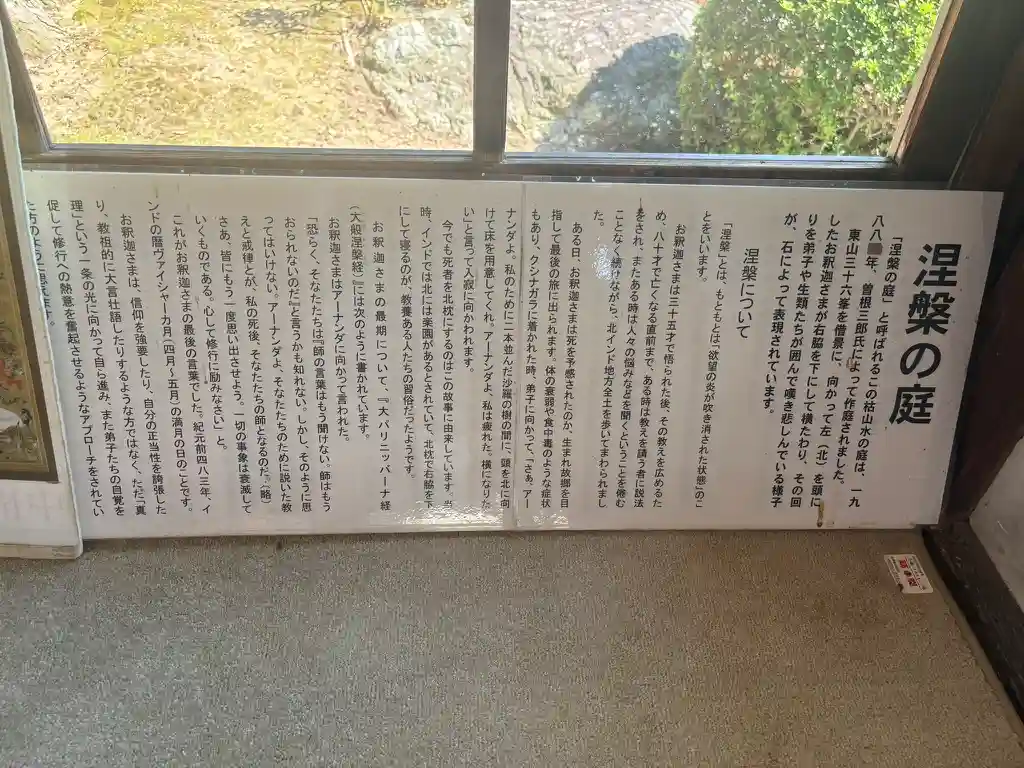 涅槃の庭
「涅槃の庭」と呼ばれるこの枯山水の庭は、一九
八八年、曽根三郎氏によって作庭されました。
東山三十六峯を借景に、向かって左(北)を頭に
したお釈迦さまが右脇を下にして横たわり、その回
りを弟子や生類たちが囲んで嘆き悲しんでいる様子
が、石によって表現されています。
涅槃について
「涅槃」とは、もともとは「欲望の炎が吹き消された状態」のこ
とをいいます。
お釈迦さまは三十五才で悟られた後、その教えを広めるた
め、八十才で亡くなる直前まで、ある時は教えを請う者に説法
をされ、またある時は人々の悩みなどを聞くということを倦む
ことなく続けながら、北インド地方全土を歩いてまわられまし
た。
ある日、お釈迦さまは死を予感されたのか、生まれ故郷を目
指して最後の旅に出られます。体の衰弱や食中毒のような症状
もあり、クシナガラに着かれた時、弟子に向かって、「さあ、アー
ナンダよ。私のために二本並んだ沙羅の樹の間に、頭を北に向
けて床を用意してくれ。アーナンダよ、私は疲れた。横になりた
い」と言って入寂に向かわれます。
今でも死者を北枕にするのはこの故事に由来しています。当
時、インドでは北には楽園があるとされていて、北枕で右脇を下
にして寝るのが、教養ある人たちの習俗だったようです。
お釈迦さまの最期について、『大パリニッバーナ経
(大般涅槃経)』には次のように書かれています。
お釈迦さまはアーナンダに向かって言われた。
「恐らく、そなたたちは『師の言葉はもう聞けない。師はもう
おられないのだ』と言うかも知れない。しかし、そのように思
ってはいけない。アーナンダよ、そなたたちのために説いた教
えと戒律とが、私の死後、そなたたちの師となるのだ。(略)
さあ、皆にもう一度思い出させよう。一切の事象は衰滅して
いくものである。心して修行に励みなさい」と。
これがお釈迦さまの最後の言葉でした。紀元前四八三年、イ
ンドの暦ヴァイシャーカ月(四月〜五月)の満月の日のことです。
お釈迦さまは、信仰を強要したり、自分の正当性を誇張した
り、教祖的に大言壮語したりするような方ではなく、ただ「真
理」という一条の光に向かって自ら進み、また弟子たちの自覚を
促して修行への熱意を奮起させるようなアプローチをされてい
た方のように思えます。